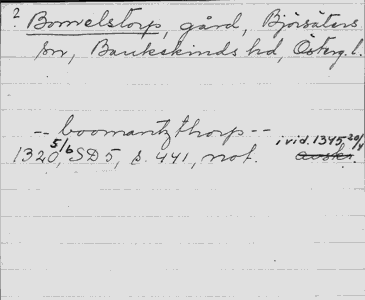 2 Bomelstorp, gård, Björsäters
sn, Bankekinds hd, Österg. l.
-- boomantzthorp --
1320 5/6, SD 5, s. 441, not. i vid. 1345 20/4.